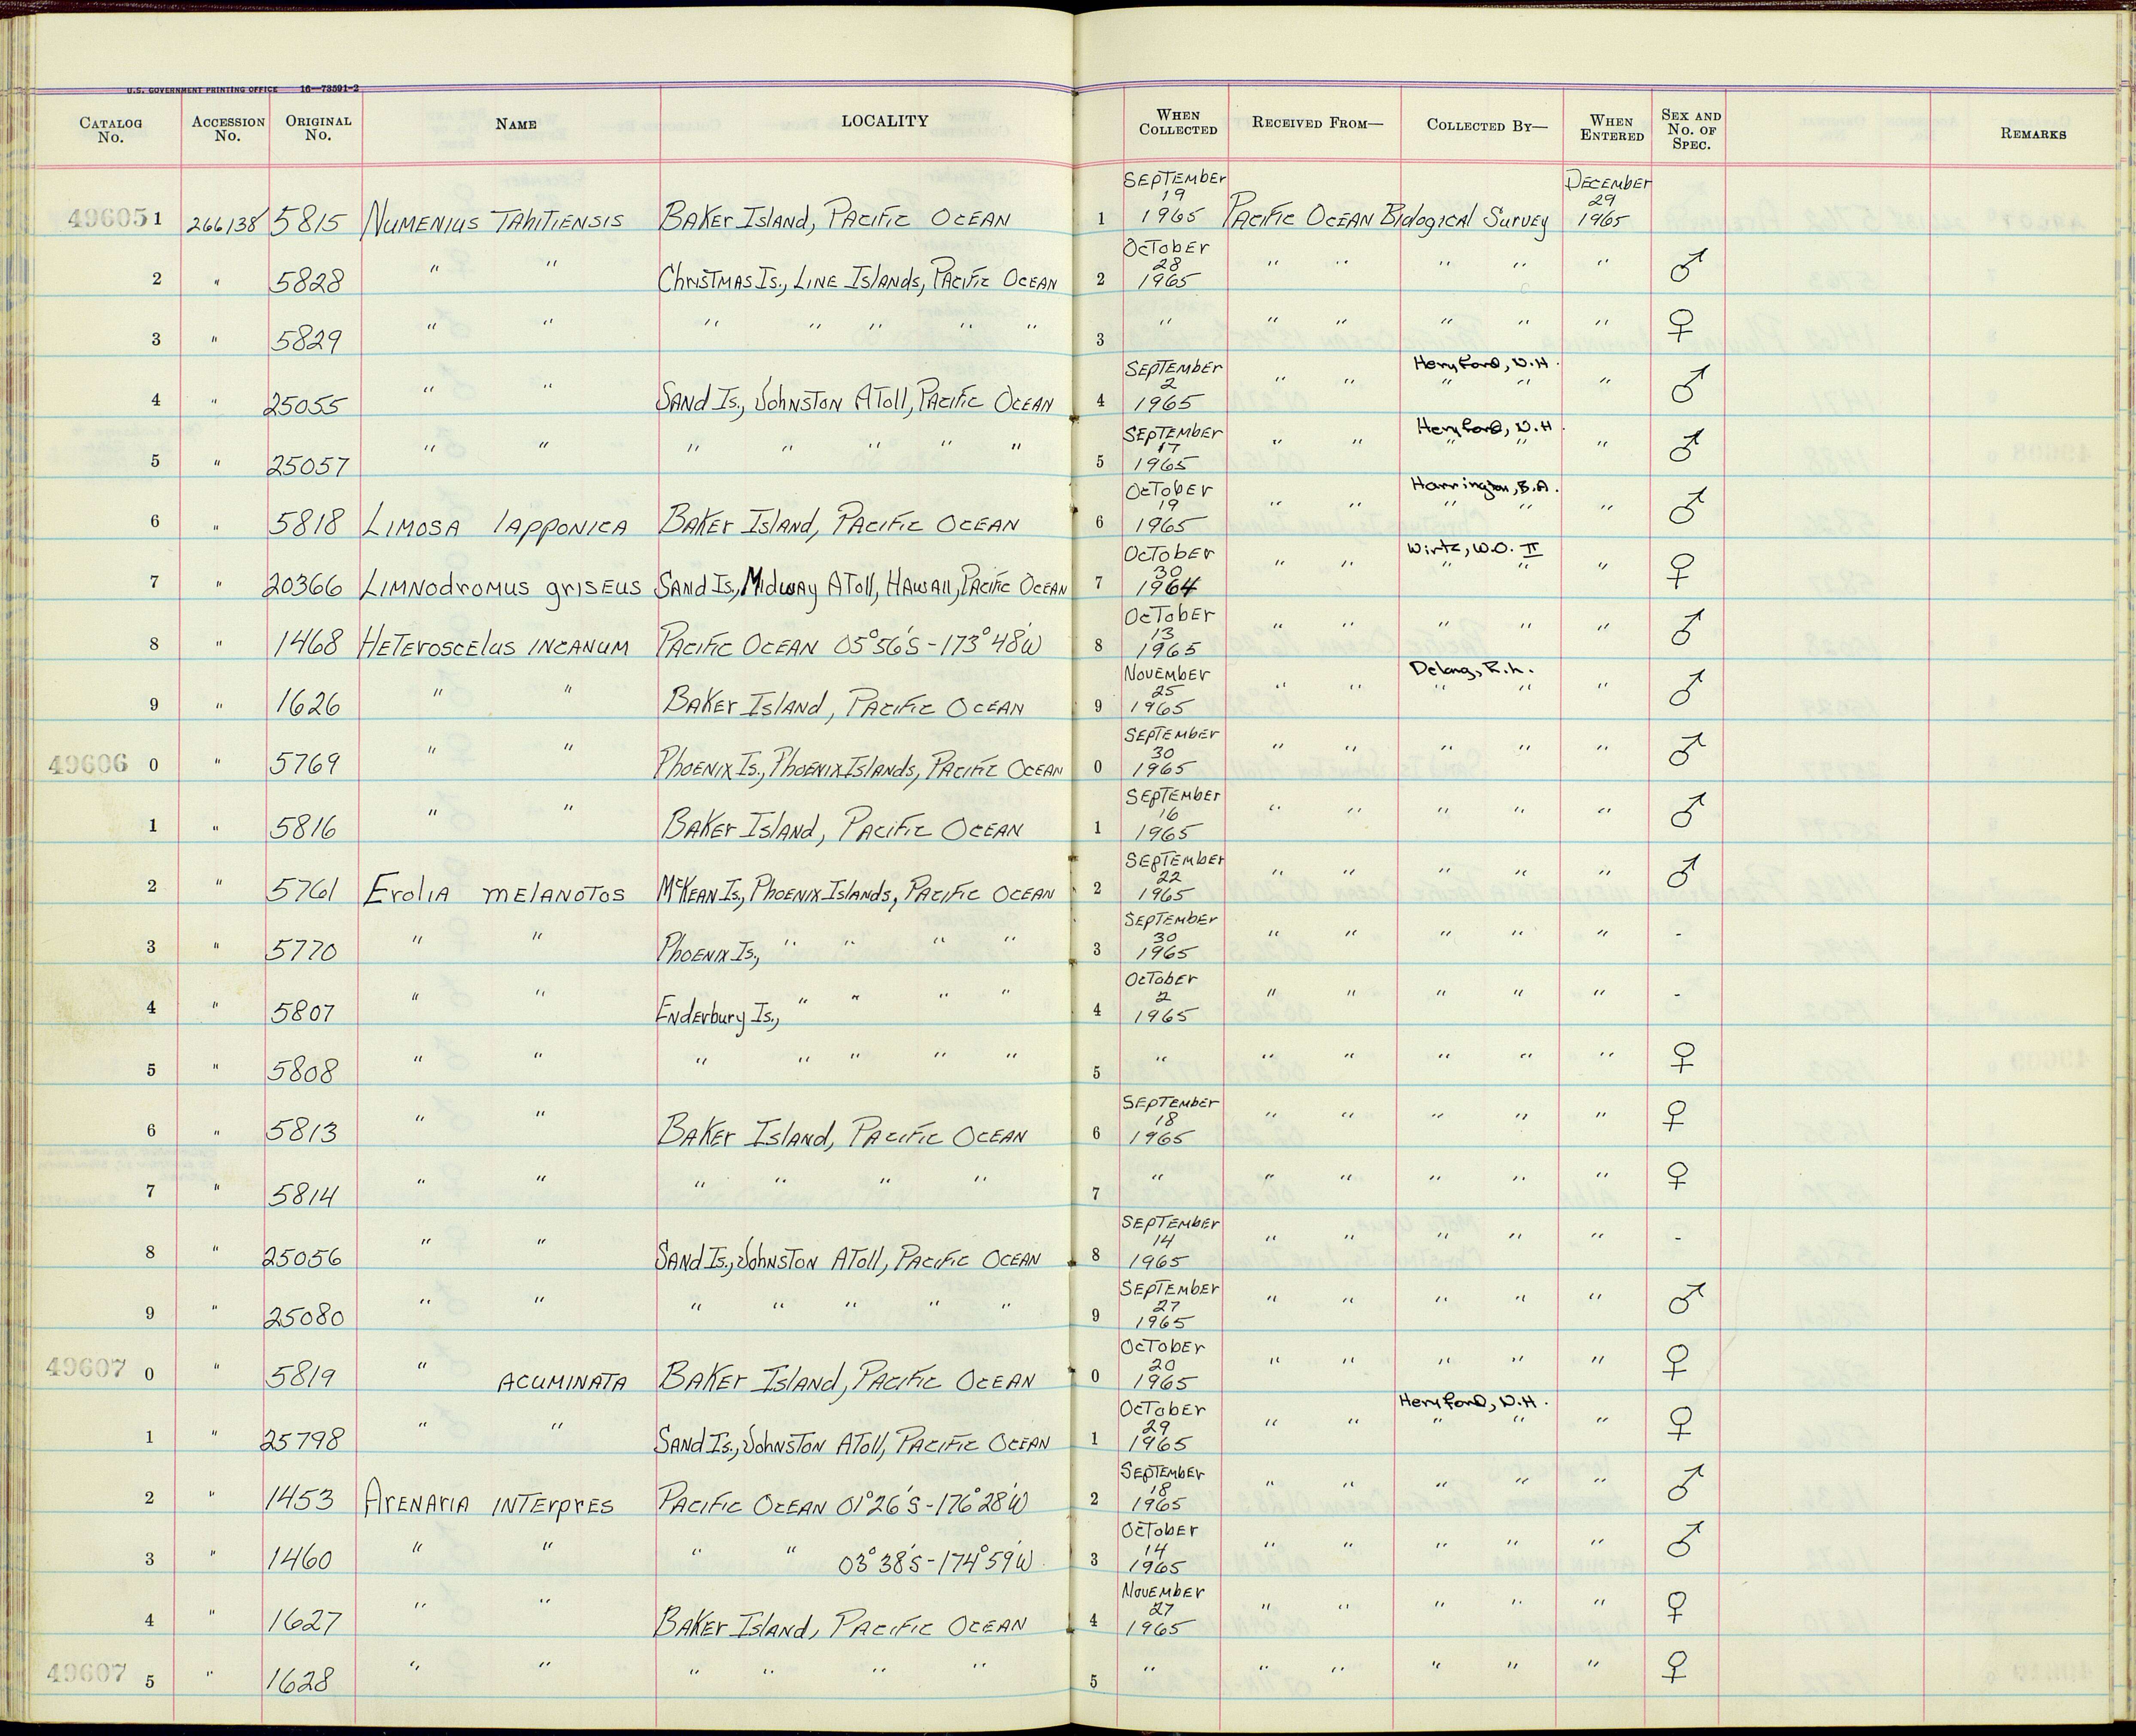 U.S. GOVERNMENT PRINTING OFFICE 16—73591-2
CATALOG No. ACCESSION No. ORIGINAL No. NAME LOCALITY WHEN COLLECTED RECEIVED FROM— COLLECTED BY— WHEN ENTERED SEX AND No. OF SPEC. REMARKS
49605 1 266138 5815 Numenius Tahitiensis Baker Island, Pacific Ocean 1 September 19 1965 Pacific Ocean Biological Survey December 29 1965
2 " 5828 " " Christmas Is., Line Islands, Pacific Ocean 2 October 28 1965 " " " " " ♂
3 " 5829 " " " " " " " 3 " " " " " " ♀
4 " 25055 " " Sand Is., Johnston Atoll, Pacific Ocean 4 September 2 1965 " " Heryford, W.H. " " " ♂
5 " 25057 " " " " " " " 5 September 17 1965 " " Heryford, W.H. " " " ♂
6 " 5818 Limosa lapponica Baker Island, Pacific Ocean 6 October 19 1965 " " Harrington, B.A. " " " ♂
7 " 20366 Limnodromus griseus Sand Is., Midway Atoll, Hawaii, Pacific Ocean 7 October 30 1964 " " Wirtz, W.O. II " " " ♀
8 " 1468 Heteroscelus incanum Pacific Ocean 05°56'S - 173°48'W 8 October 13 1965 " " " " " ♂
9 " 1626 " " Baker Island, Pacific Ocean 9 November 25 1965 " " Delong, R.L. " " " ♂
49606 0 " 5769 " " Phoenix Is., Phoenix Islands, Pacific Ocean 0 September 30 1965 " " " " " ♂
1 " 5816 " " Baker Island, Pacific Ocean 1 September 16 1965 " " " " " ♂
2 " 5761 Erolia melanotos McKean Is., Phoenix Islands, Pacific Ocean 2 September 22 1965 " " " " " ♂
3 " 5770 " " Phoenix Is., " " " " 3 September 30 1965 " " " " " -
4 " 5807 " " Enderbury Is., " " " " 4 October 2 1965 " " " " " -
5 " 5808 " " " " " " " 5 " " " " " " ♀
6 " 5813 " " Baker Island, Pacific Ocean 6 September 18 1965 " " " " " ♀
7 " 5814 " " " " " " 7 " " " " " " ♀
8 " 25056 " " Sand Is., Johnston Atoll, Pacific Ocean 8 September 14 1965 " " " " " -
9 " 25080 " " " " " " " 9 September 27 1965 " " " " " ♂
49607 0 " 5819 " acuminata Baker Island, Pacific Ocean 0 October 20 1965 " " " " " ♀
1 " 25798 " " Sand Is., Johnston Atoll, Pacific Ocean 1 October 29 1965 " " Heryford, W.H. " " " ♀
2 " 1453 Arenaria interpres Pacific Ocean 01°26'S - 176°28'W 2 September 18 1965 " " " " " ♂
3 " 1460 " " " " 03°38'S - 174°59'W 3 October 14 1965 " " " " " ♂
4 " 1627 " " Baker Island, Pacific Ocean 4 November 27 1965 " " " " " ♀
49607 5 " 1628 " " " " " " 5 " " " " " " ♀